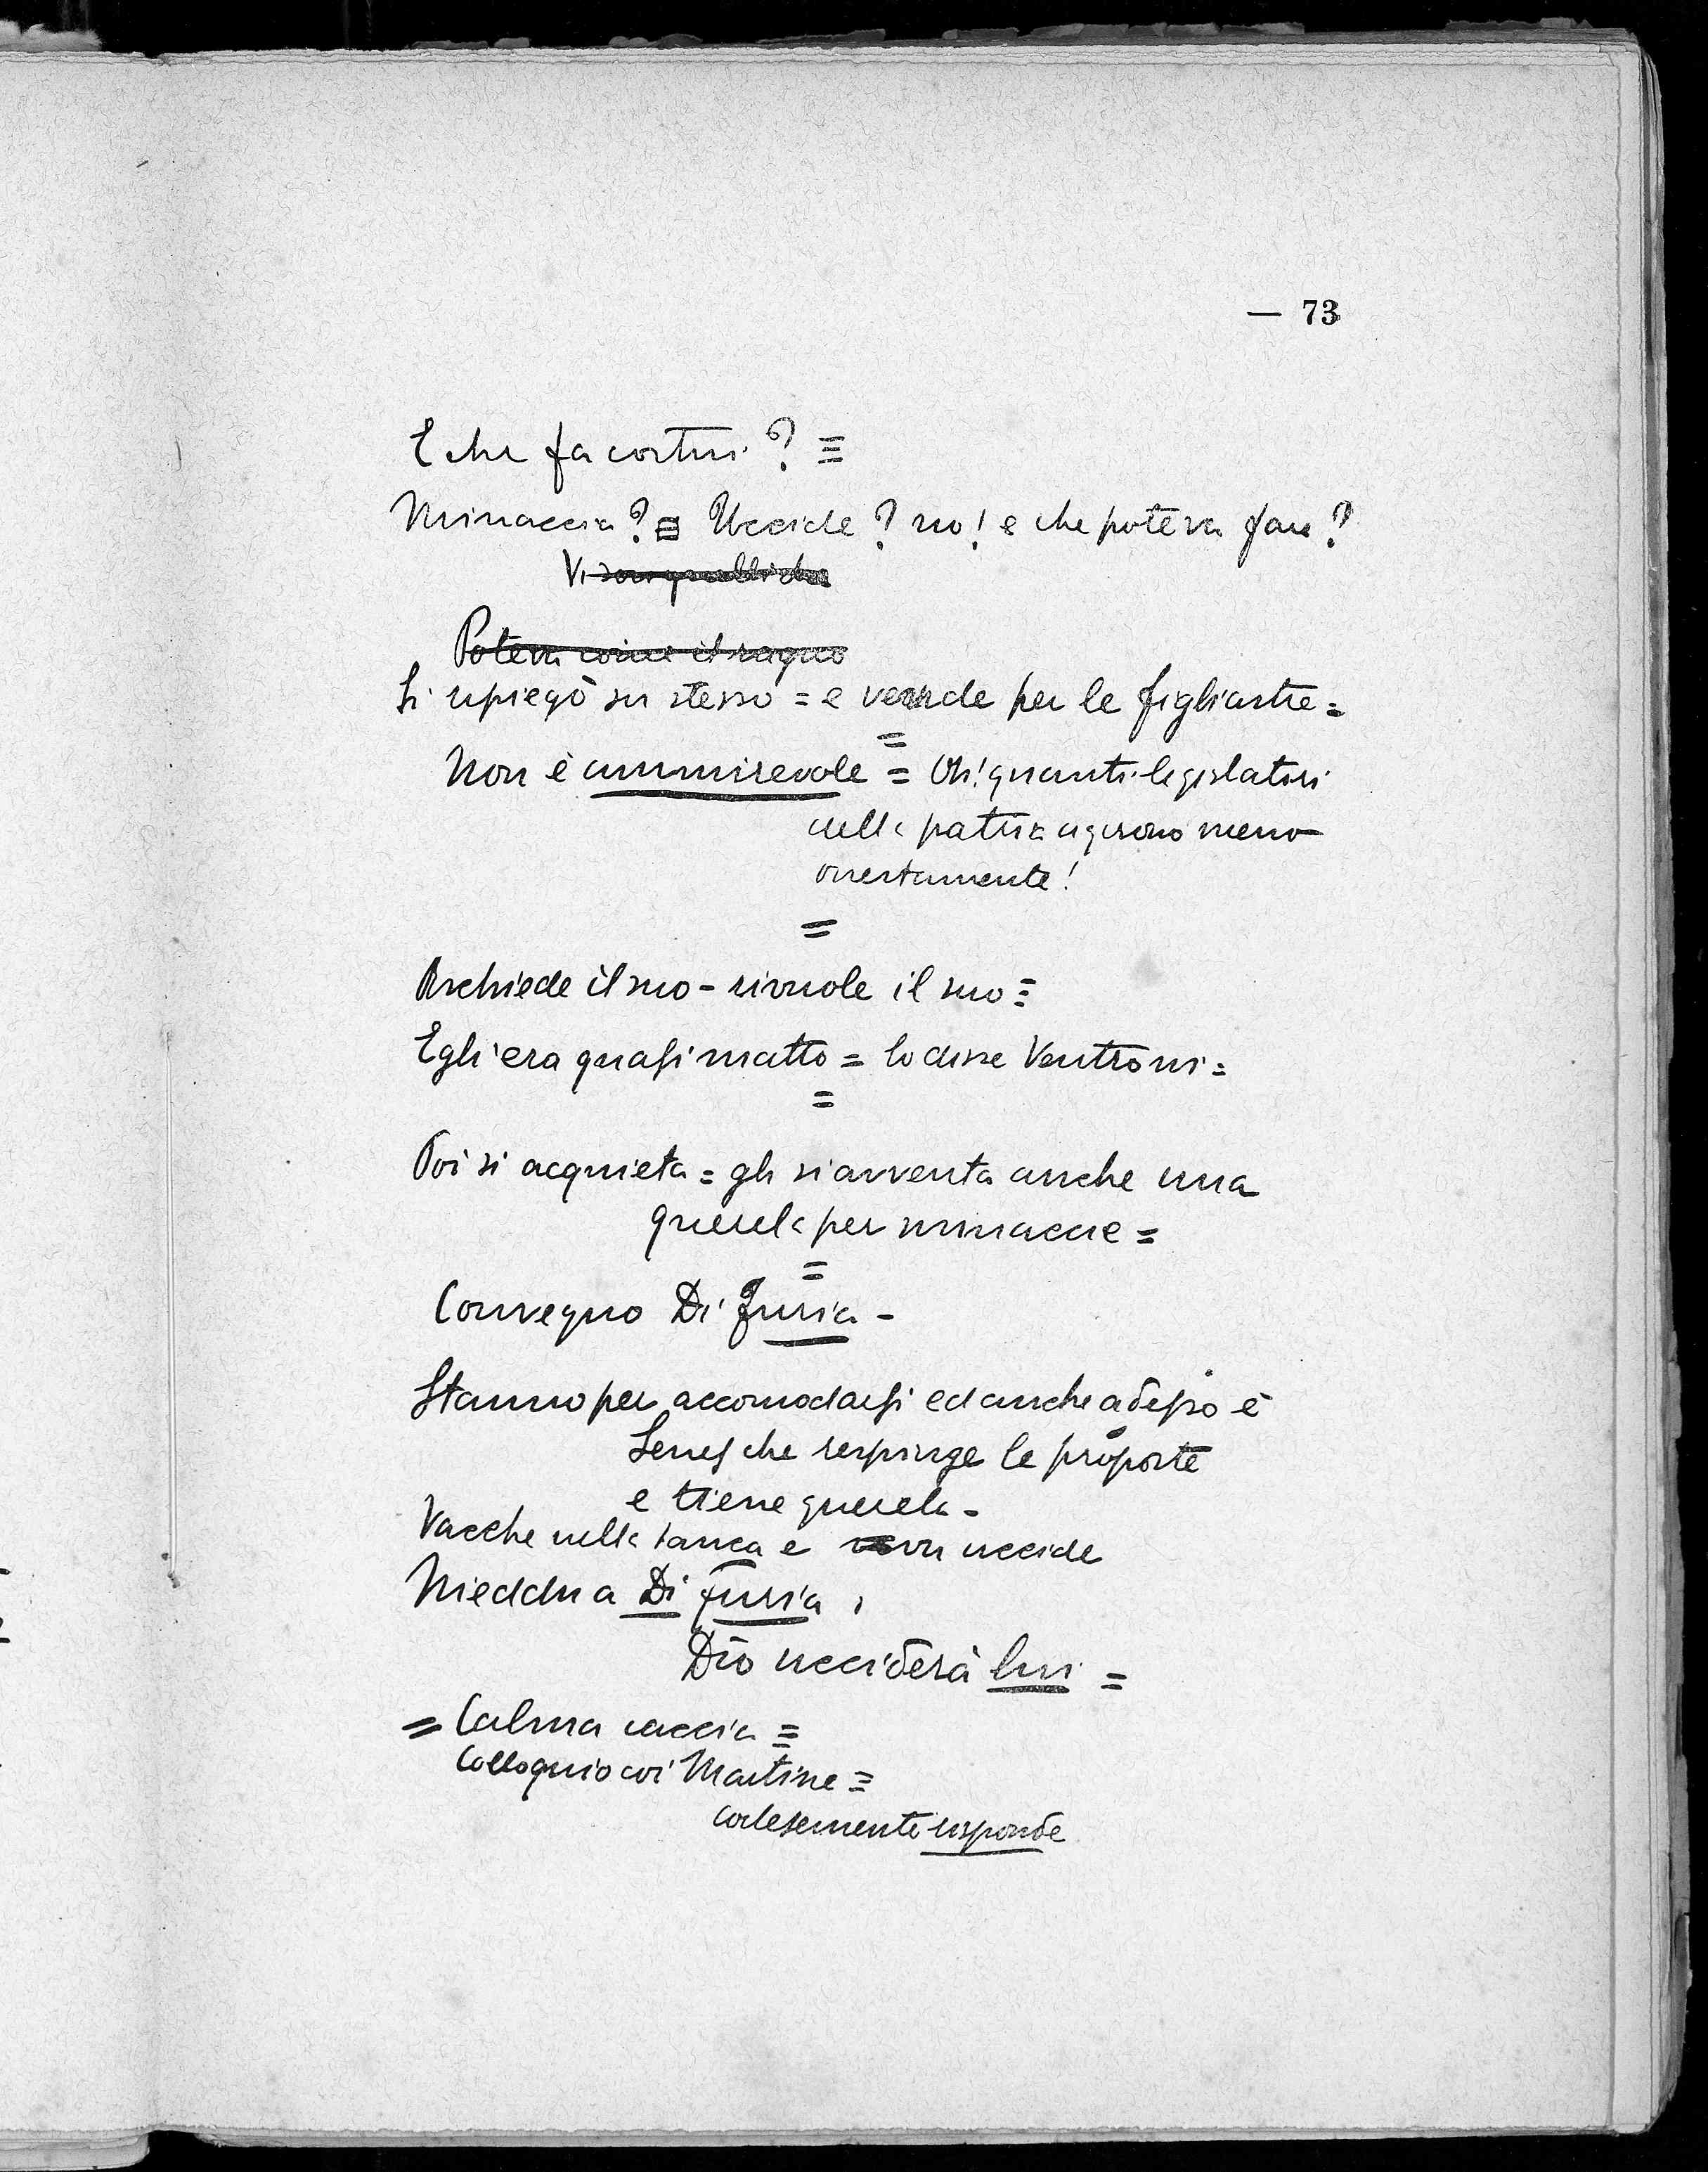 — 73
E che fa costui? ≡
Minaccia? ≡ Uccide? no! e che poteva fare?
Vi son quelli che
Poteva come il ragno
Si ripiegò su stesso = e vende per le figliastre =
=
Non è ammirevole = Oh! quanti legislatori
della patria agirono meno
onestamente!
=
Richiede il suo - rivuole il suo =
Egli era quasi matto = lo disse Ventroni =
=
Poi si acquieta = gli si avventa anche una
querela per minaccie =
=
Convegno Di Furia -
Stanno per accomodarsi ed anche adesso è
Senes che respinge le proposte
e tiene querela -
Vacche nella tanca e non uccide
Nieddu a Di Furia,
Dio ucciderà lui =
= Calma caccia =
Colloquio coi Martine =
cortesemente risponde